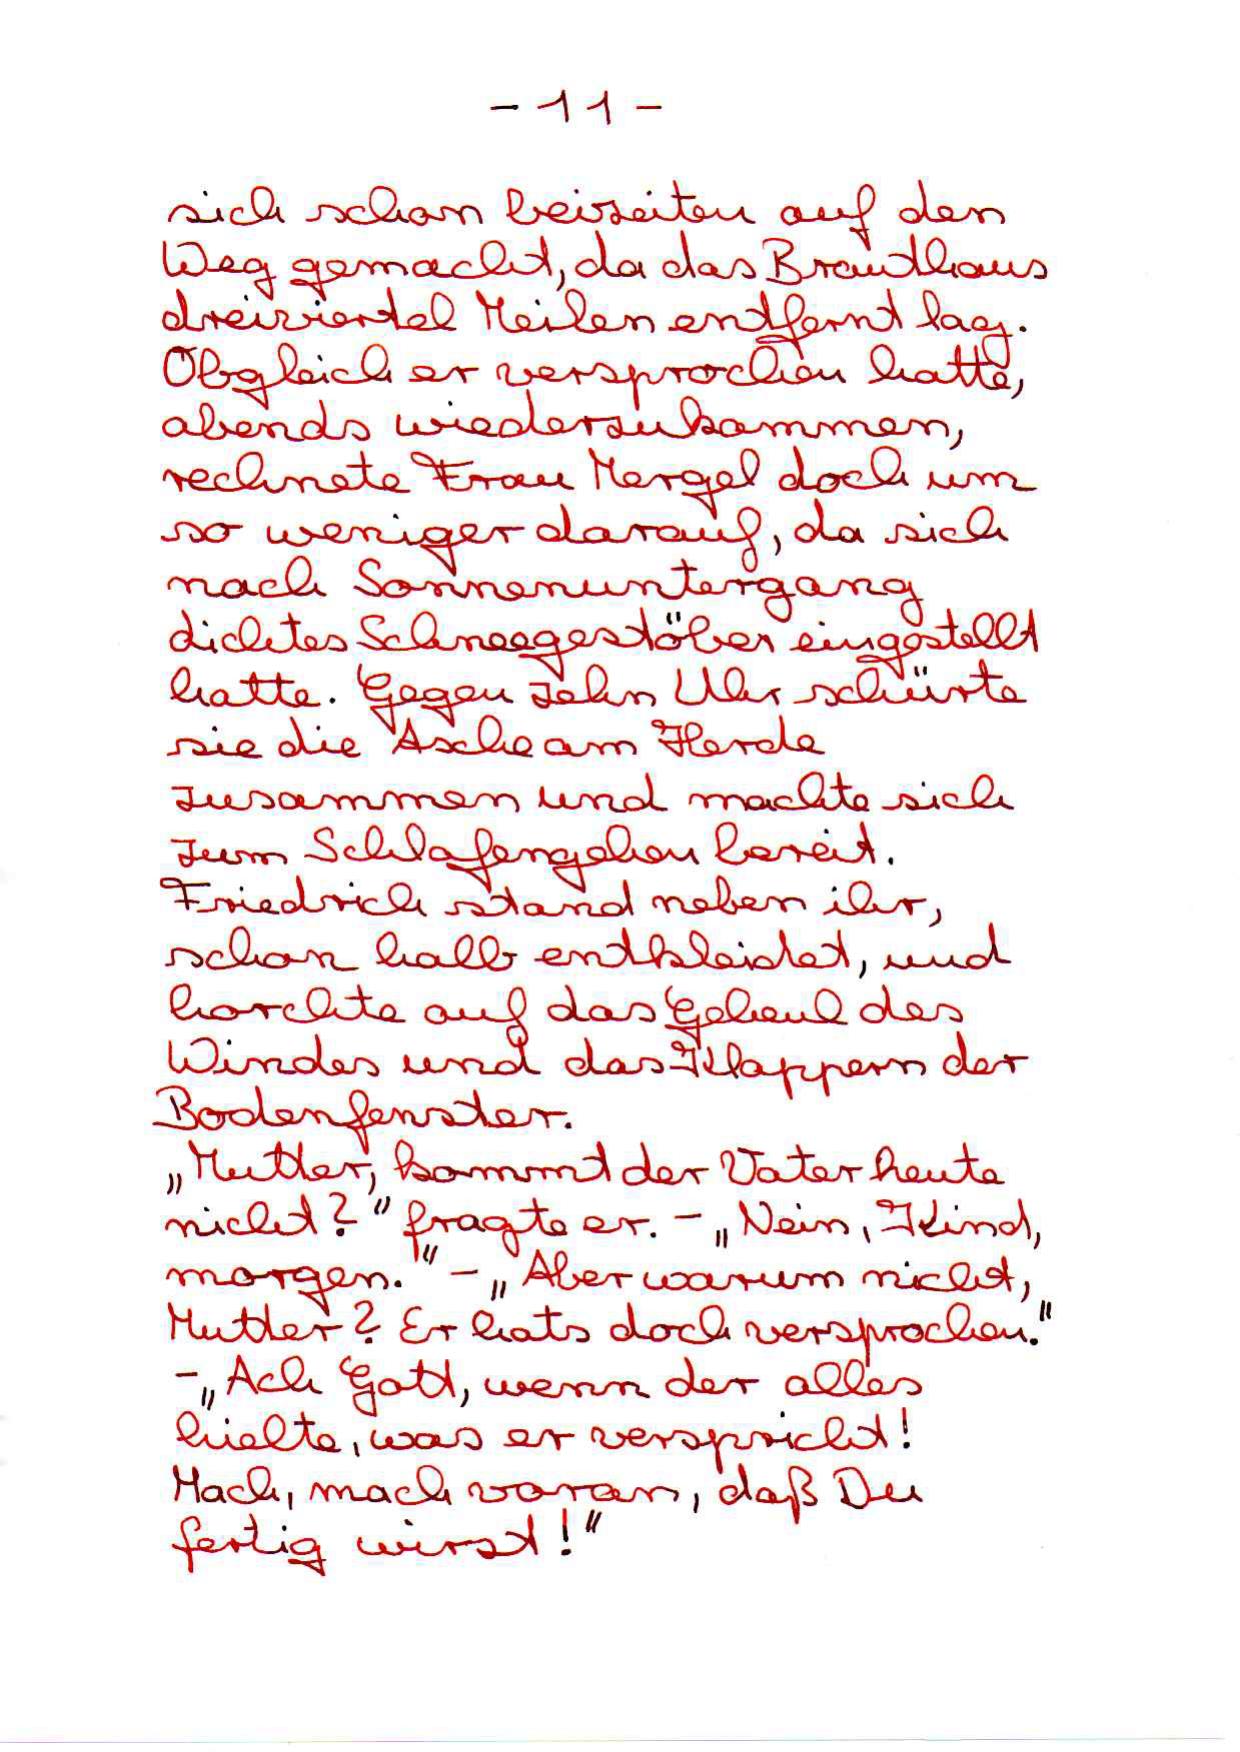 - 11 -
sich schon beizeiten auf den
Weg gemacht, da das Brauthaus
dreiviertel Meilen entfernt lag.
Obgleich er versprochen hatte,
abends wiederzukommen,
rechnete Frau Mergel doch um
so weniger darauf, da sich
nach Sonnenuntergang
dichtes Schneegestöber eingestellt
hatte. Gegen zehn Uhr schürte
sie die Asche am Herde
zusammen und machte sich
zum Schlafengehen bereit.
Friedrich stand neben ihr,
schon halb entkleidet, und
horchte auf das Geheul des
Windes und das Klappern der
Bodenfenster.
„Mutter, kommt der Vater heute
nicht?" fragte er. - „Nein, Kind,
morgen." - „Aber warum nicht,
Mutter? Er hats doch versprochen."
- „Ach Gott, wenn der alles
hielte, was er verspricht!
Mach, mach voran, daß Du
fertig wirst!"